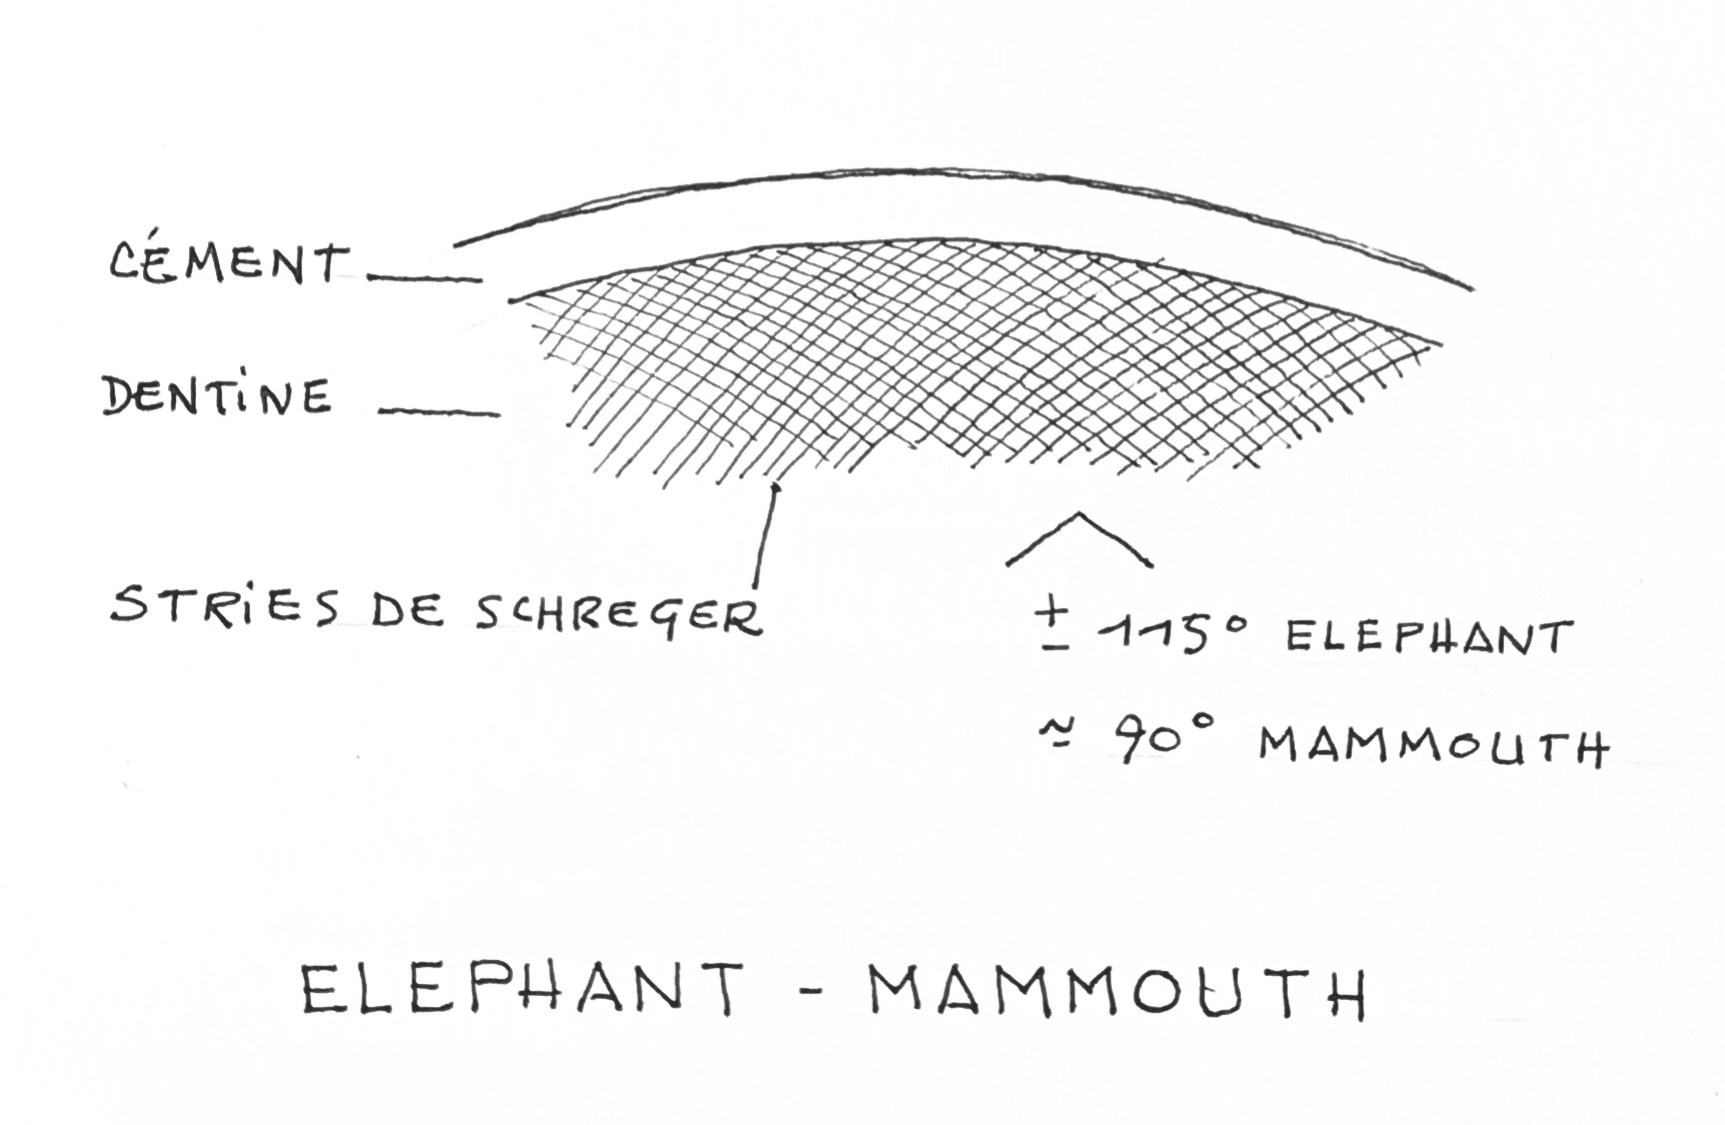 CÉMENT
DENTINE
STRIES DE SCHREGER
± 115° ELEPHANT
≃ 90° MAMMOUTH
ELEPHANT - MAMMOUTH